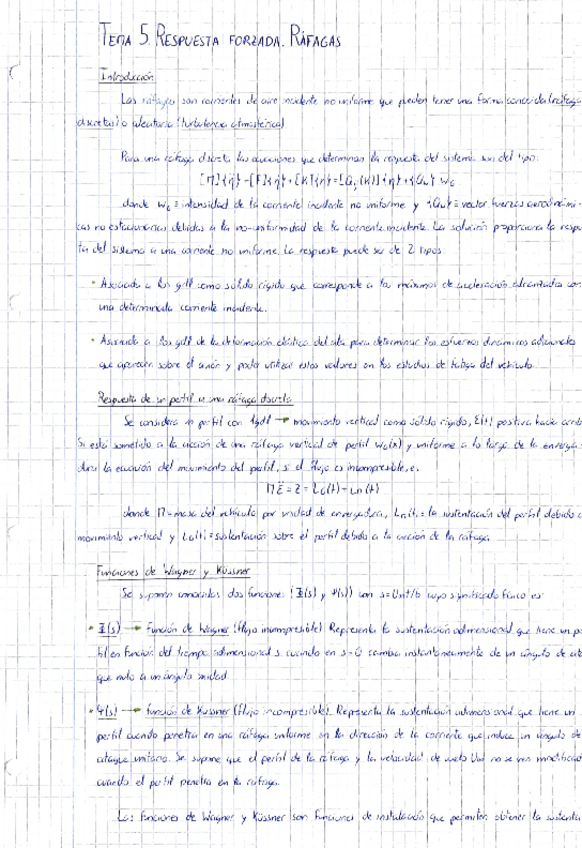 TEMA 5. RESPUESTA FORZADA. RÁFAGAS
Introducción
Las ráfagas son corrientes de aire incidente no uniforme que pueden tener una forma conocida (ráfaga
discreta) o aleatoria (turbulencia atmosférica)
Para una ráfaga discreta las ecuaciones que determinan la respuesta del sistema son del tipo:
donde WG = intensidad de la corriente incidente no uniforme y = vector fuerzas aerodinámi-
cas no estacionarias debidas a la no-uniformidad de la corriente incidente. La solución proporciona la respu
ta del sistema a una corriente no uniforme. La respuesta puede ser de 2 tipos
• Asociada a los gdl como sólido rígido que corresponde a los máximos de aceleración alcanzados con
una determinada corriente incidente.
• Asociada a los gdl de la deformación elástica del ala para determinar los esfuerzos dinámicos adicionales
que aparecen sobre el avión y poder utilizar estos valores en los estudios de fatiga del vehículo
Respuesta de un perfil a una ráfaga discreta
Se considera un perfil con 1gdl → movimiento vertical como sólido rígido, positiva hacia arrib
Si está sometido a la acción de una ráfaga vertical de perfil WG(x) y uniforme a lo largo de la enverga
dura la ecuación del movimiento del perfil, si el flujo es incompresible, e.
donde M = masa del vehículo por unidad de envergadura, = la sustentación del perfil debido a
movimiento vertical y LG(t) = sustentación sobre el perfil debido a la acción de la ráfaga
Funciones de Wagner y Küssner
Se suponen conocidas dos funciones (Φ(s) y Ψ(s)) con s=U∞t/b cuyo significado físico es
• Φ(s) → Función de Wagner (flujo incompresible) Representa la sustentación adimensional que tiene un pe
fil en función del tiempo adimensional s cuando en s=0 cambia instantáneamente de un ángulo de ata
que nulo a un ángulo unidad
• Ψ(s) → Función de Küssner (flujo incompresible). Representa la sustentación adimensional que tiene un
perfil cuando penetra en una ráfaga uniforme en la dirección de la corriente que induce un ángulo de
ataque unitario. Se supone que el perfil de la ráfaga y la velocidad de vuelo U∞ no se ven modificad
cuando el perfil penetra en la ráfaga.
Las funciones de Wagner y Küssner son funciones de que permiten obtener la sustenta